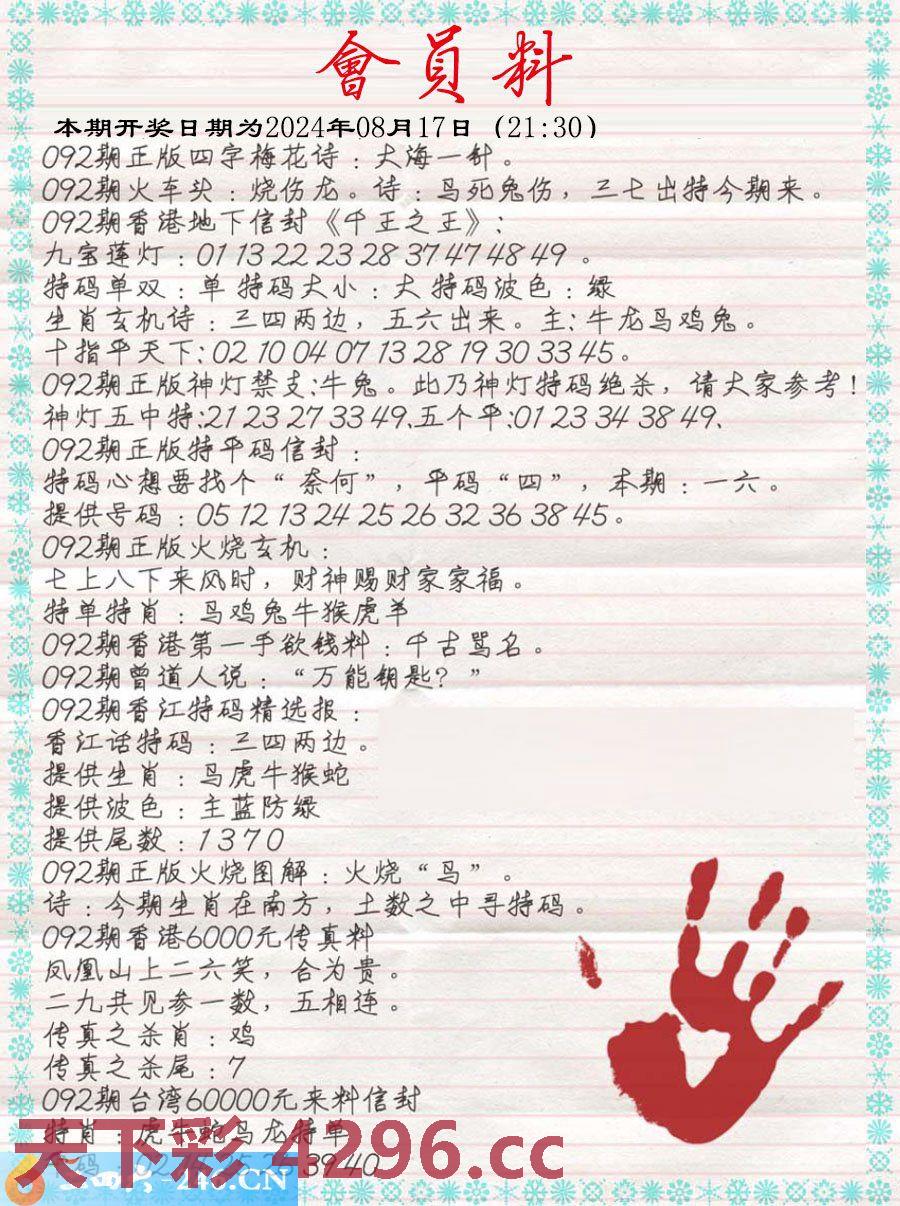 會員料
本期开奖日期为2024年08月17日(21:30)
092期正版四字梅花诗：大海一针。
092期火车头：烧伤龙。诗：鸟死兔伤，三七出特今期来。
092期香港地下信封《千王之王》：
九宝莲灯：01 13 22 23 28 37 47 48 49 。
特码单双：单 特码大小：大 特码波色：绿
生肖玄机诗：三四两边，五六出来。主：牛龙鸟鸡兔。
十指平天下：02 10 04 07 13 28 19 30 33 45。
092期正版神灯禁支：牛兔。此乃神灯特码绝杀，请大家参考！
神灯五中特：21 23 27 33 49.五个平：01 23 34 38 49.
092期正版特平码信封：
特码心想要找个“奈何”，平码“四”，本期：一六。
提供号码：05 12 13 24 25 26 32 36 38 45。
092期正版火烧玄机：
七上八下来风时，财神赐财家家福。
特单特肖：鸟鸡兔牛猴虎羊
092期香港第一手欲钱料：千古骂名。
092期曾道人说：“万能钥匙？”
092期香江特码精选报：
香江话特码：三四两边。
提供生肖：鸟虎牛猴蛇
提供波色：主蓝防绿
提供尾数：1 3 7 0
092期正版火烧图解：火烧“鸟”。
诗：今期生肖在南方，土数之中寻特码。
092期香港6000元传真料
凤凰山上二六笑，合为贵。
二九共见参一数，五相连。
传真之杀肖：鸡
传真之杀尾：7
092期台湾60000元来料信封
特肖：虎牛蛇鸟龙特单
天下彩 4296.cc
39 40
246.CN